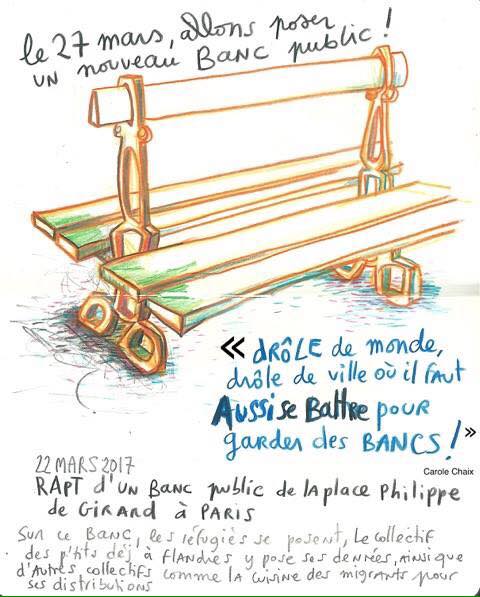 le 27 mars, allons poser
un nouveau BANC public !
« dRÔLE de monde,
drôle de ville où il faut
AUSSI se Battre pour
garder des BANCS ! »
Carole Chaix
22 MARS 2017
RAPT d'un Banc public de la place Philippe
de GIRARD à PARIS
Sur ce BANC, les réfugiés se posent, Le collectif
des p'tits dèj' à Flandres y pose ses denrées, ainsi que
d'Autres collectifs comme la cuisine des migrants pour
ses distributions